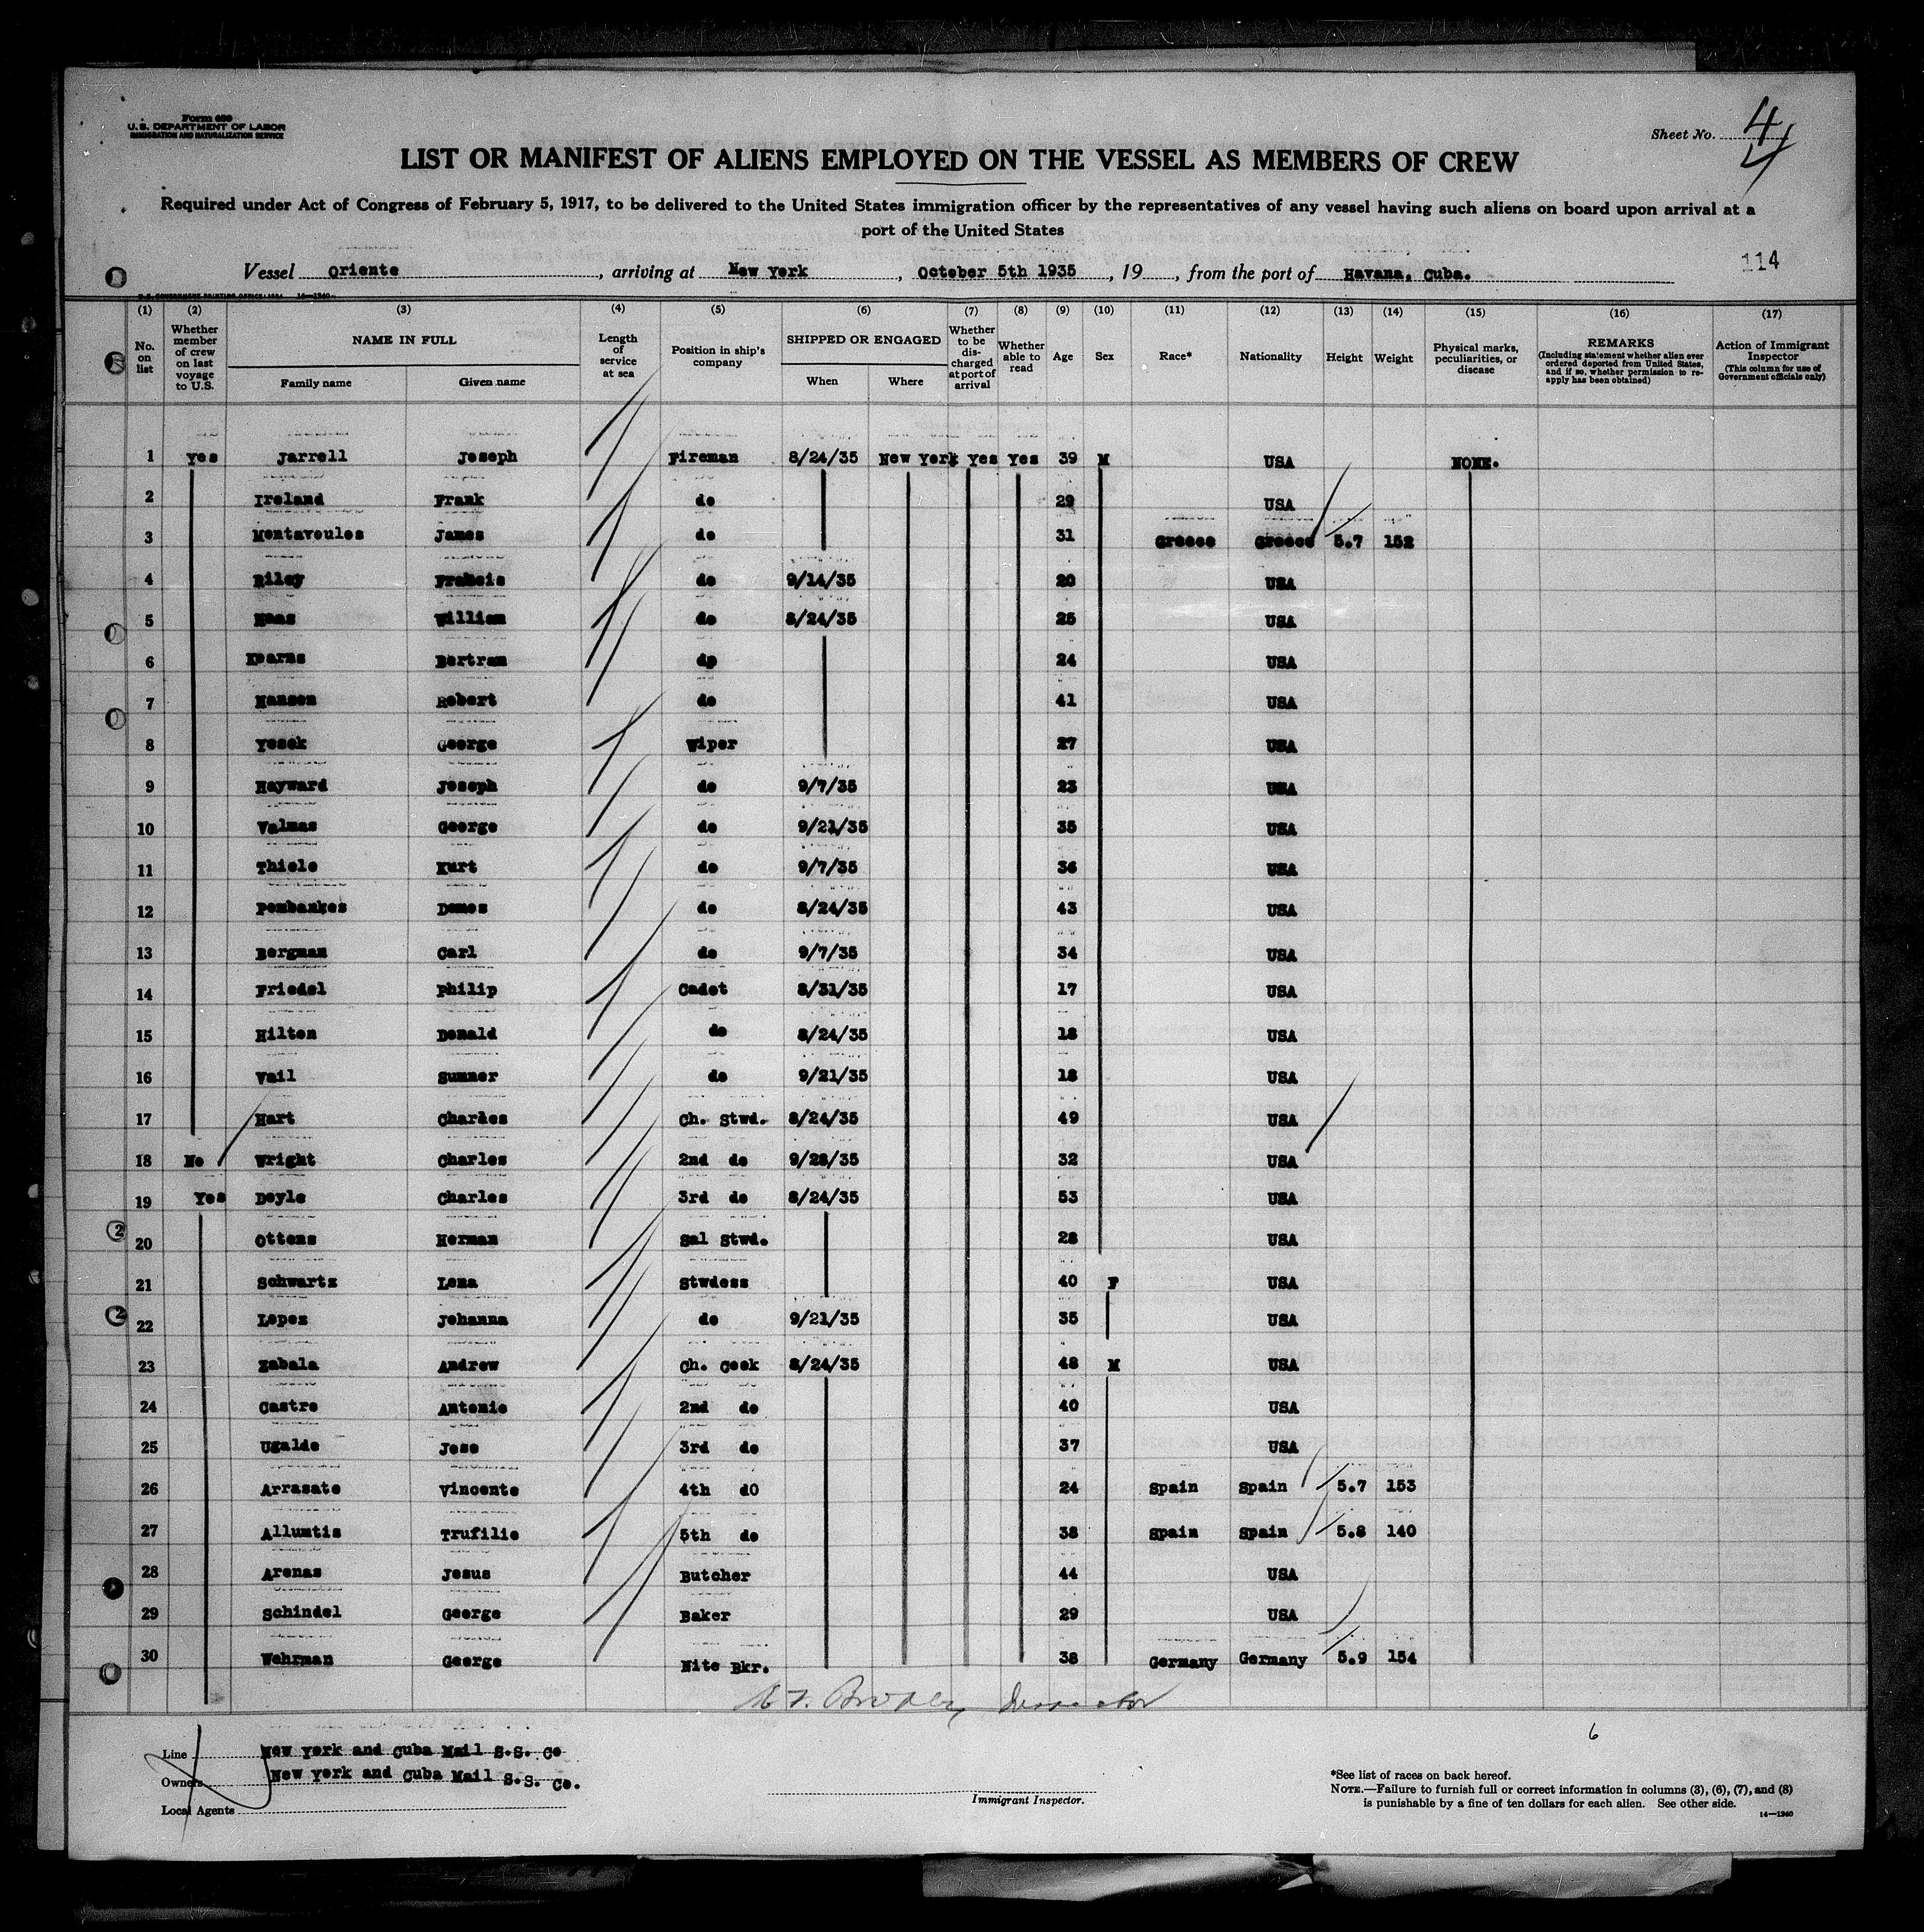 Form 689
U. S. DEPARTMENT OF LABOR
IMMIGRATION AND NATURALIZATION SERVICE
Sheet No. 4
4
LIST OR MANIFEST OF ALIENS EMPLOYED ON THE VESSEL AS MEMBERS OF CREW
Required under Act of Congress of February 5, 1917, to be delivered to the United States immigration officer by the representatives of any vessel having such aliens on board upon arrival at a
port of the United States
114
Vessel Oriente, arriving at New York, October 5th 1935, 19, from the port of Havana, Cuba.
(1) (2) (3) (4) (5) (6) (7) (8) (9) (10) (11) (12) (13) (14) (15) (16) (17)
No. on list
Whether member of crew on last voyage to U.S.
NAME IN FULL
Family name
Given name
Length of service at sea
Position in ship's company
SHIPPED OR ENGAGED
When
Where
Whether to be discharged at port of arrival
Whether able to read
Age
Sex
Race*
Nationality
Height
Weight
Physical marks, peculiarities, or disease
REMARKS
(Including statement whether alien ever ordered deported from United States, and if so, whether permission to reapply has been obtained)
Action of Immigrant Inspector
(This column for use of Government officials only)
1 Yes Jarrell Joseph Fireman 8/24/35 New York Yes Yes 39 M USA NONE.
2 Ireland Frank do 29 USA
3 Montavoulos James do 31 Greece Greece 5.7 152
4 Riley Francis do 9/14/35 20 USA
5 Haas William do 8/24/35 25 USA
6 Kearns Bertram do 24 USA
7 Hansen Robert do 41 USA
8 Yosek George Wiper 27 USA
9 Hayward Joseph do 9/7/35 23 USA
10 Valmas George do 9/21/35 35 USA
11 Thiele Kurt do 9/7/35 36 USA
12 Pombankes Demos do 8/24/35 43 USA
13 Bergman Carl do 9/7/35 34 USA
14 Friedel Philip Cadet 8/31/35 17 USA
15 Hilton Donald do 8/24/35 18 USA
16 Vail Sumner do 9/21/35 18 USA
17 Hart Charles Ch. Stwd. 8/24/35 49 USA
18 No Wright Charles 2nd do 9/28/35 32 USA
19 Yes Doyle Charles 3rd do 8/24/35 53 USA
20 Ottens Herman Sal Stwd. 28 USA
21 Schwartz Lena Stwdess 40 F USA
22 Lopez Johanna do 9/21/35 35 USA
23 Zabala Andrew Ch. Cook 8/24/35 48 M USA
24 Castro Antonio 2nd do 40 USA
25 Ugalde Jose 3rd do 37 USA
26 Arrasate Vincente 4th dO 24 Spain Spain 5.7 153
27 Alluntis Trufilio 5th do 38 Spain Spain 5.8 140
28 Arenas Jesus Butcher 44 USA
29 Schindel George Baker 29 USA
30 Wehrman George Nite Bkr. 38 Germany Germany 5.9 154
Inspector
6
Line New York and Cuba Mail S.S. Co
Owners New York and Cuba Mail S.S. Co.
Local Agents
Immigrant Inspector.
*See list of races on back hereof.
NOTE.—Failure to furnish full or correct information in columns (3), (6), (7), and (8)
is punishable by a fine of ten dollars for each alien. See other side.
14—1240